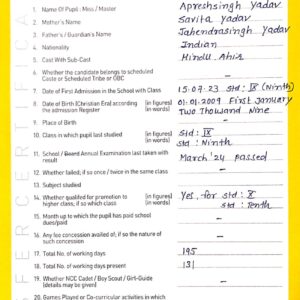 1. Name Of Pupil : Miss / Master Apreshsingh Yadav
2. Mother's Name Savita Yadav
3. Father's / Guardian's Name Jahendrasingh Yadav
4. Nationality Indian
5. Cast With Sub-Cast Hindu Ahir
6. Whether the candidate belongs to scheduled Caste or Scheduled Tribe or OBC —
7. Date of First Admission in the School with Class 15.07.23 std : IX (Ninth)
8. Date of Birth (Christian Era) according (in figures) 01.01.2009 First January
the admission Register (in words) Two Thousand Nine
9. Place of Birth —
10. Class in which pupil last studied (in figures) std : IX
(in words) std : Ninth
11. School / Board Annual Examination last taken with result March '24 passed
12. Whether failed; if so once / twice in the same class —
13. Subject studied
14. Whether qualified for promotion to (in figures) Yes, for std : X
higher class, if so which class (in words) std : Tenth
15. Month up to which the pupil has paid school dues/paid —
16. Any fee concession availed of; if so the nature of such concession —
17. Total No. of working days 195
18. Total No. of working days present 131
19. Whether NCC Cadet / Boy Scout / Girl-Guide (details may be given) —
20. Games Played or Co-curricular activities in which